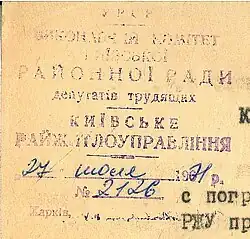 УРСР
ВИКОНАВЧИЙ КОМІТЕТ
КИЇВСЬКОЇ
РАЙОННОЇ РАДИ
депутатів трудящих
КИЇВСЬКЕ
РАЙЖИТЛОУПРАВЛІННЯ
27 июля 1971 р.
№ 2126
Харків,
К
с погр
РЖУ пр